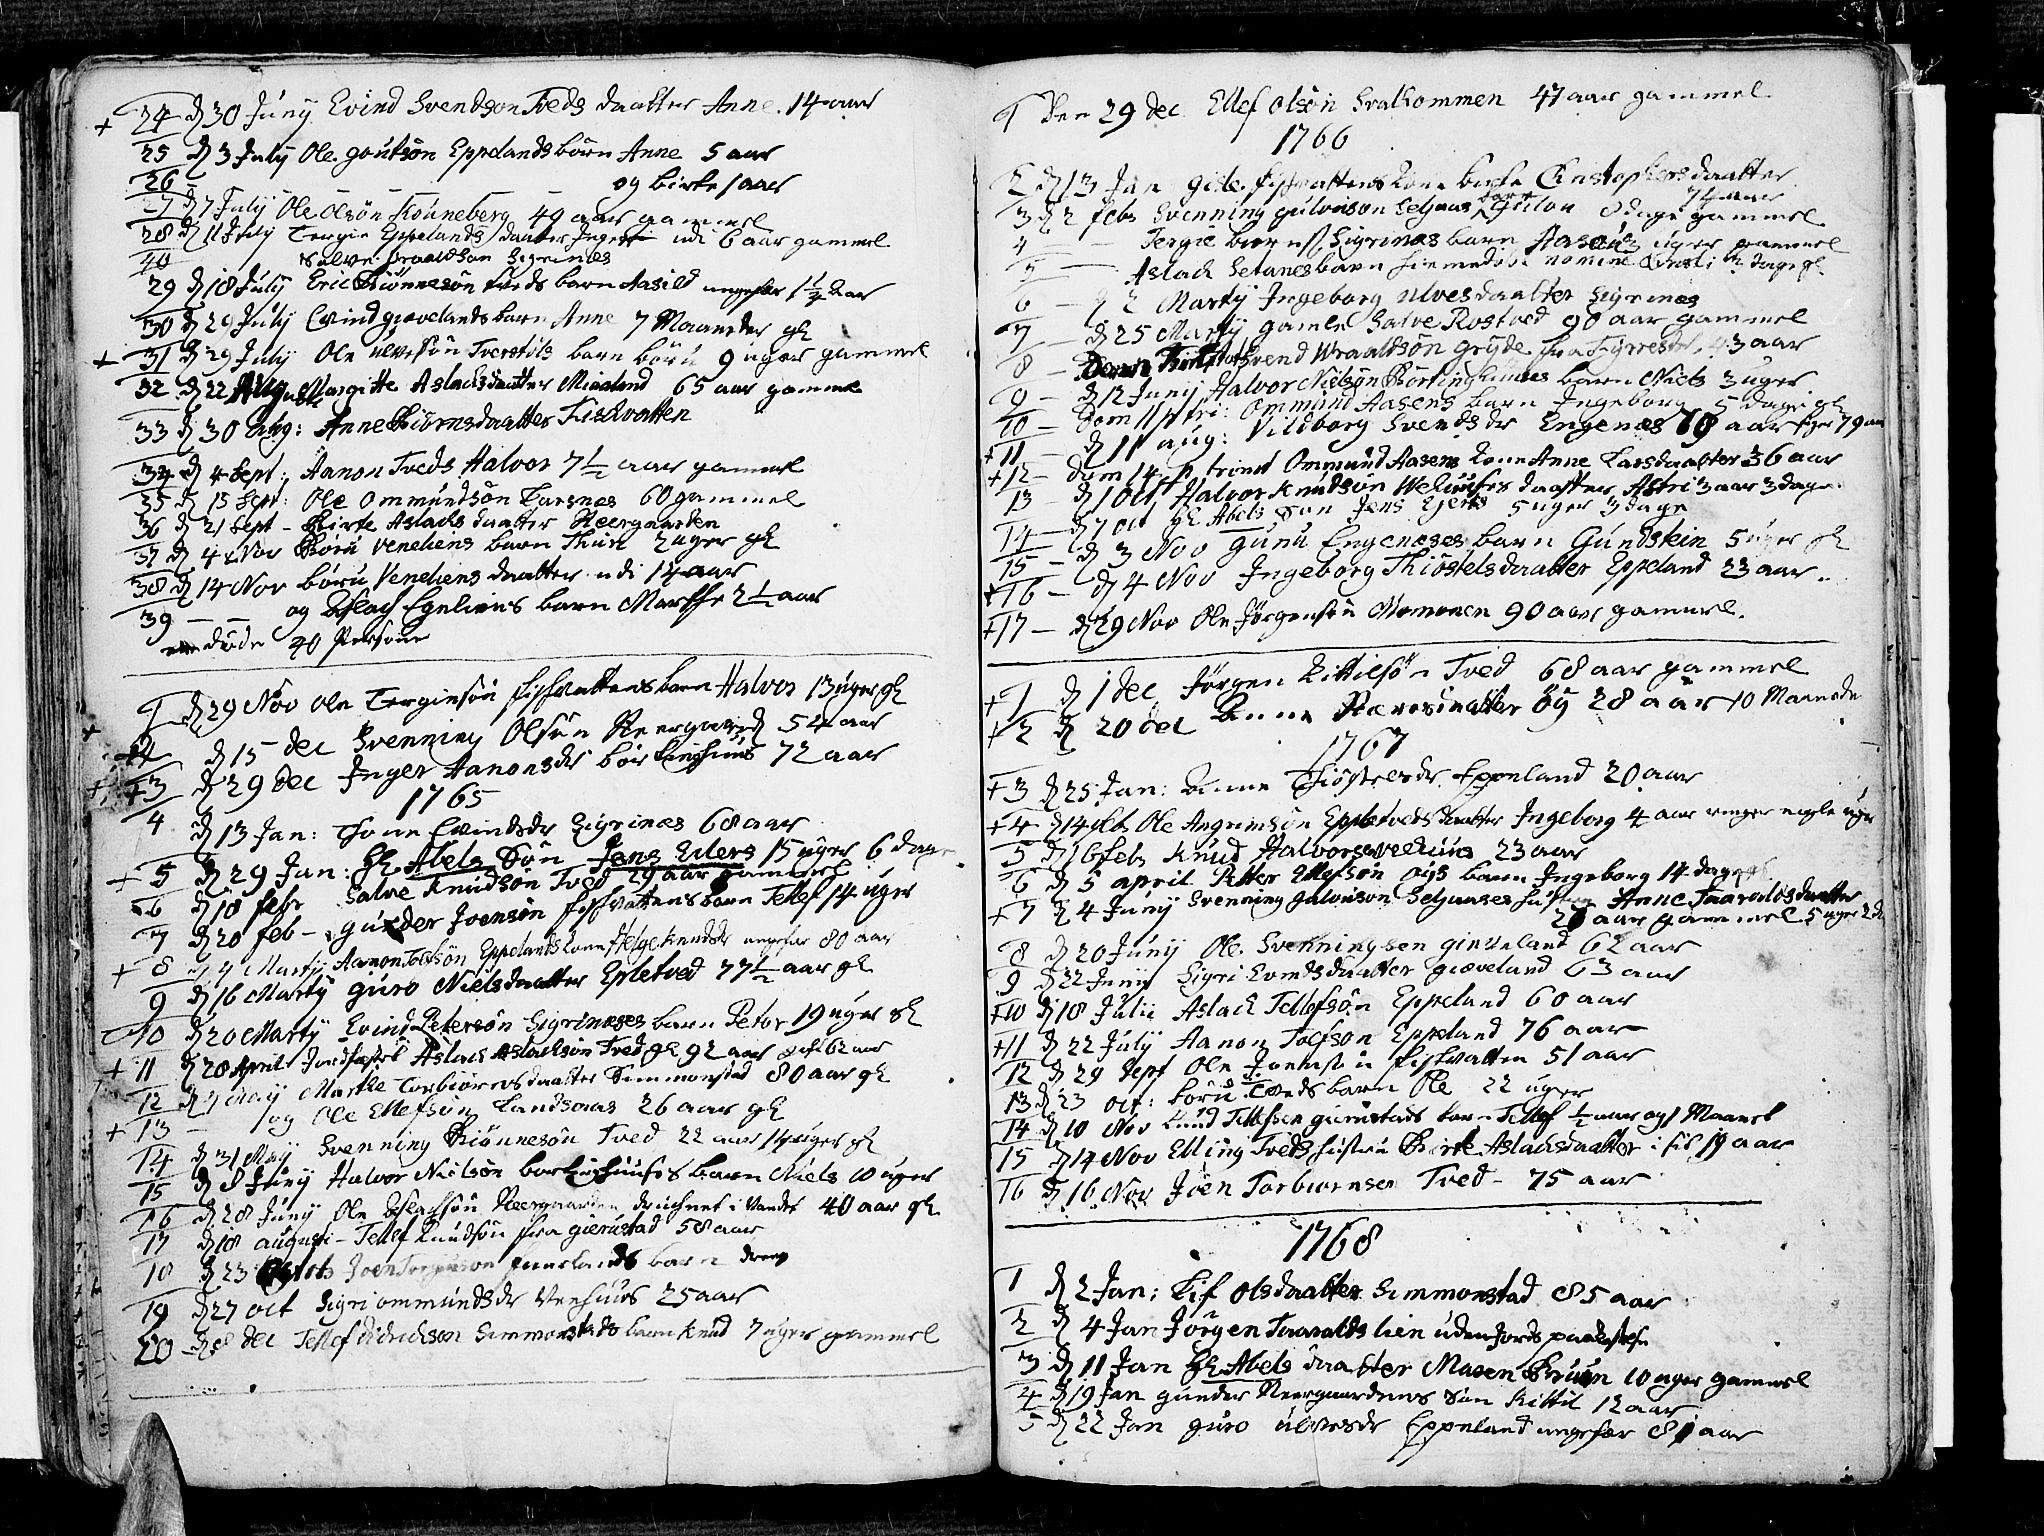 + 24 d 30 Juny Evind Svendson Tveds daatter Anne. 14 aar
25 d 3 July Ole goutsön Eppelands börn Anne 5 aar
26 og birte 1 aar
27 d 7 July Ole Olsön 49 aar gammel
28 d 11 July Tergie Eppelands daatter udi 6 aar gammel
40 Salve Sigrines
29 d 18 July Eric Biönnesön Tveds barn Aasild ungefær 1½ aar
30 d 29 July Evind grævelands barn Anne 7 Maaneder gl
+ 31 d 29 July Ole ulvesön Tverstöls barn börü 9 uger gammel
32 d 22 Augusti Margitte Aslachsdaatter Miaaland 65 aar gammel
33 d 30 aug: Anne Biörnsdaatter Fiskvatten
34 d 4 Sept: Aanon Tveds Halvor 7½ aar gammel
35 d 15 Sept: Ole Ommundsön 60 gammel
36 d 21 Sept - Birte Aslachs daatter Neergaarden
37 d 4 Nov Börü Veneliens barn 2 uger gl
38 d 14 Nov börü Veneliens daatter udi 14 aar
39 - - og Aslach Egeliens barn Marthe 2½ aar
döde 40 Persone
1 d 29 Nov Ole Terginsön fiskvattens barn Halvor 13 uger gl
+ 2 d 15 dec Svenning Olsön Neergaard 54 aar
+ 3 d 29 dec Inger Aanonsdr börtinghuus 72 aar
1765
4 d 13 Jan: Thone Evindsdr Sigrinæs 68 aar
+ 5 d 29 Jan: Hr Abels Sön Jens Eilers 15 uger 6 dage
6 d 18 febr Salve Knudsön Tved 29 aar gammel
7 d 20 feb - gunder Joensön fiskvattens barn Tellef 14 uger
+ 8 d 4 Marty Aanon Tolfsön Eppelands kone Helge Knudsdr ungefær 80 aar
9 d 16 Marty guro Nielsdaatter Epletved 77½ aar gl
10 d 20 Marty Evind Petersön Sigrinæses barn Peter 19 uger gl
+ 11 d 28 April Jordfæstet Aslach Aslachsön Tved gl 92 aar 62 aar
12 d May Marthe Torbiörnsdaatter Simmonstad 80 aar gl
+ 13 - og Ole Ellefsön Landsaas 26 aar gl
14 d 31 May Svenning Biönnesön Tved 22 aar 14 uger gl
15 d 8 Juny Halvor Nielsön börtinghuuses barn Niels 10 uger
16 d 28 Juny Ole Aslachsön Neergaarden druchnet i Vandet 40 aar gl
17 d 18 augusti - Tellef Knudsön fra gierustad 58 aar
18 d 23 Joen barn
19 d 27 oct Sigri ommundsdr Veehuus 25 aar
20 d 8 dec Tellef didrichson Simmonstads barn Knud 7 uger gammel
1 den 29 dec. Ellef Olsön Svalkommen 47 aar gammel
1766
2 d 13 Jan gisle. fiskvattens kone birte Christophersdaatter
74 aar
3 d 2 febr Svenning gulvsson Seljaas barn 8 dage gammel
4 - - Tergie Sigrinæs barn uger gammel
5 - Aslach barn hiemedöbt nomine Christi dage gl
6 - d 2 Marty Ingeborg Ulvesdaatter Sigrinæs
7 - d 25 Marty gamle Salve Rostved 90 aar gammel
8 - Svend Wraaldsön gryde fra 43 aar
9 - d 12 Junij Halvor Nielsön Börtinghuuses barn Niels 3 uger
10 - Dom 11 p tri: Ommund Aasens barn Ingeborg 5 dage gl
+ 11 - d 11 aug: Vildborg Svendsdr Engenæs aar 79 aar
+ 12 - dom 14 p trinit Ommund Aasens kone Anne Larsdaatter 36 aar
13 - d 1 Oct Halvor Knudsön daatter Astri 3 aar 3 dage
14 - d 7 oct Hr Abels Sön Jens Ejlerts 5 uger 3 dage
15 - d 3 Nov gunu Engenæses barn Gundstein 5 uger gl
+ 16 - d 4 Nov Ingeborg Thiöstelsdaatter Eppeland 23 aar
+ 17 - d 29 Nov Ole Jörgensön Momonen 90 aar gammel.
+ 1 d 1 dec Jörgen Kittilsön Tved 68 aar gammel
+ 2 d 20 dec Anne öy 28 aar 10 Maaneder
1767
+ 3 d 25 Jan: Anne Thiöstelsdr Eppeland 20 aar
+ 4 d 14 feb Ole Angrimsön Epletveds daatter Ingeborg 4 aar nogle uger
5 d 16 feb Knud Halvorsön 23 aar
6 d 5 april Petter Ellefsön öys barn Ingeborg 14 dage gl
+ 7 d 4 Juny Svenning gulvsson Seljaases hustru Anne Taaraldsdaatter
28 aar gammel 5 uger 2 d
8 d 20 Juny Ole Svenningsen 62 aar
9 d 22 Juny Sigri Evindsdaatter græveland 63 aar
+ 10 d 18 Julii Aslach Tellefsön Eppeland 60 aar
+ 11 d 22 July Aanon Tolfson Eppeland 76 aar
12 d 29 Sept Ole Joensön fiskvatten 51 aar
13 d 23 oct: börü Tveds barn Ole 22 uger
14 d 10 Nov Knud Tellefsen gierustads barn Tellef ½ aar og 1 Maanet
15 d 14 Nov Elling Tveds hustru Birte Aslachsdaatter i sit 19 aar
16 d 16 Nov Joen Torbiörnsen Tved - 75 aar
1768
1 d 2 Jan: Lif Olsdaatter Simmonstad 85 aar
2 d 4 Jan Jörgen Taaraldslien uden Jords paakastelse
3 d 11 Jan Hr Abels daatter Maren Bruun 10 uger gammel
4 d 19 Jan gunder Neergaardens Sön Kittil 12 aar
5 d 22 Jan guro ulvesdr Eppeland ungefær 81 aar